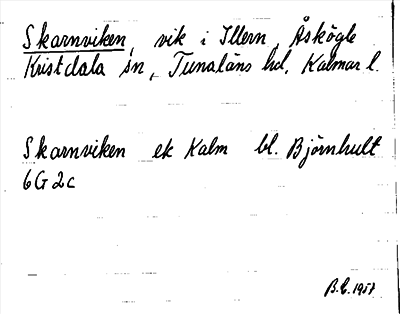 Skarnviken, vik i Illern, Åskögle
Kristdala sn, Tunaläns hd, Kalmar l.
Skarnviken ek Kalm bl. Björnhult
6G2c
B.L. 1957